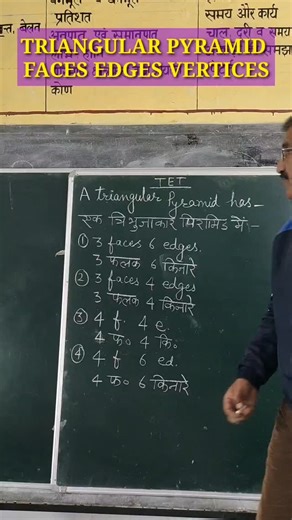 प्रतिशत
समय और कार्य
TRIANGULAR PYRAMID
FACES EDGES VERTICES
कोण
TET
A triangular Pyramid has-
एक त्रिभुजाकार पिरामिड में:-
① 3 faces 6 edges.
3 फलक 6 किनारे
② 3 faces 4 edges
3 फलक 4 किनारे
③ 4 f. 4 e.
4 फ० 4 कि०
④ 4 f 6 ed.
4 फ० 6 किनारे